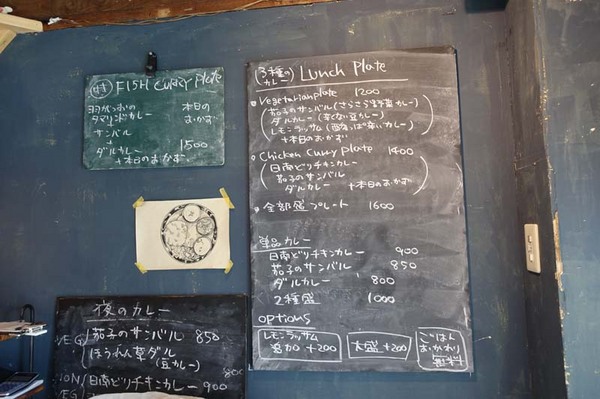 特 FISH Curry Plate
羽がつおの 本日の
タマリンドカレー おかず
サンバル
+
ダルカレー 1500
+本日のおかず
3種のカレー Lunch Plate
Vegetarian plate 1200
茄子のサンバル(さらさら野菜カレー)
ダルカレー(辛くない豆カレー)
レモンラッサム(酸っぱ辛いカレー)
+本日のおかず
Chicken Curry plate 1400
日南どりチキンカレー
茄子のサンバル
ダルカレー +本日のおかず
全部盛プレート 1600
単品カレー
日南どりチキンカレー 900
茄子のサンバル 850
ダルカレー 800
2種盛 1000
options
レモンラッサム
追加 +200
大盛 +200
ごはん
おかわり
無料
夜のカレー
VEG 茄子のサンバル 850
ほうれん草ダル
(豆カレー) 800
NON VEG 日南どりチキンカレー 900